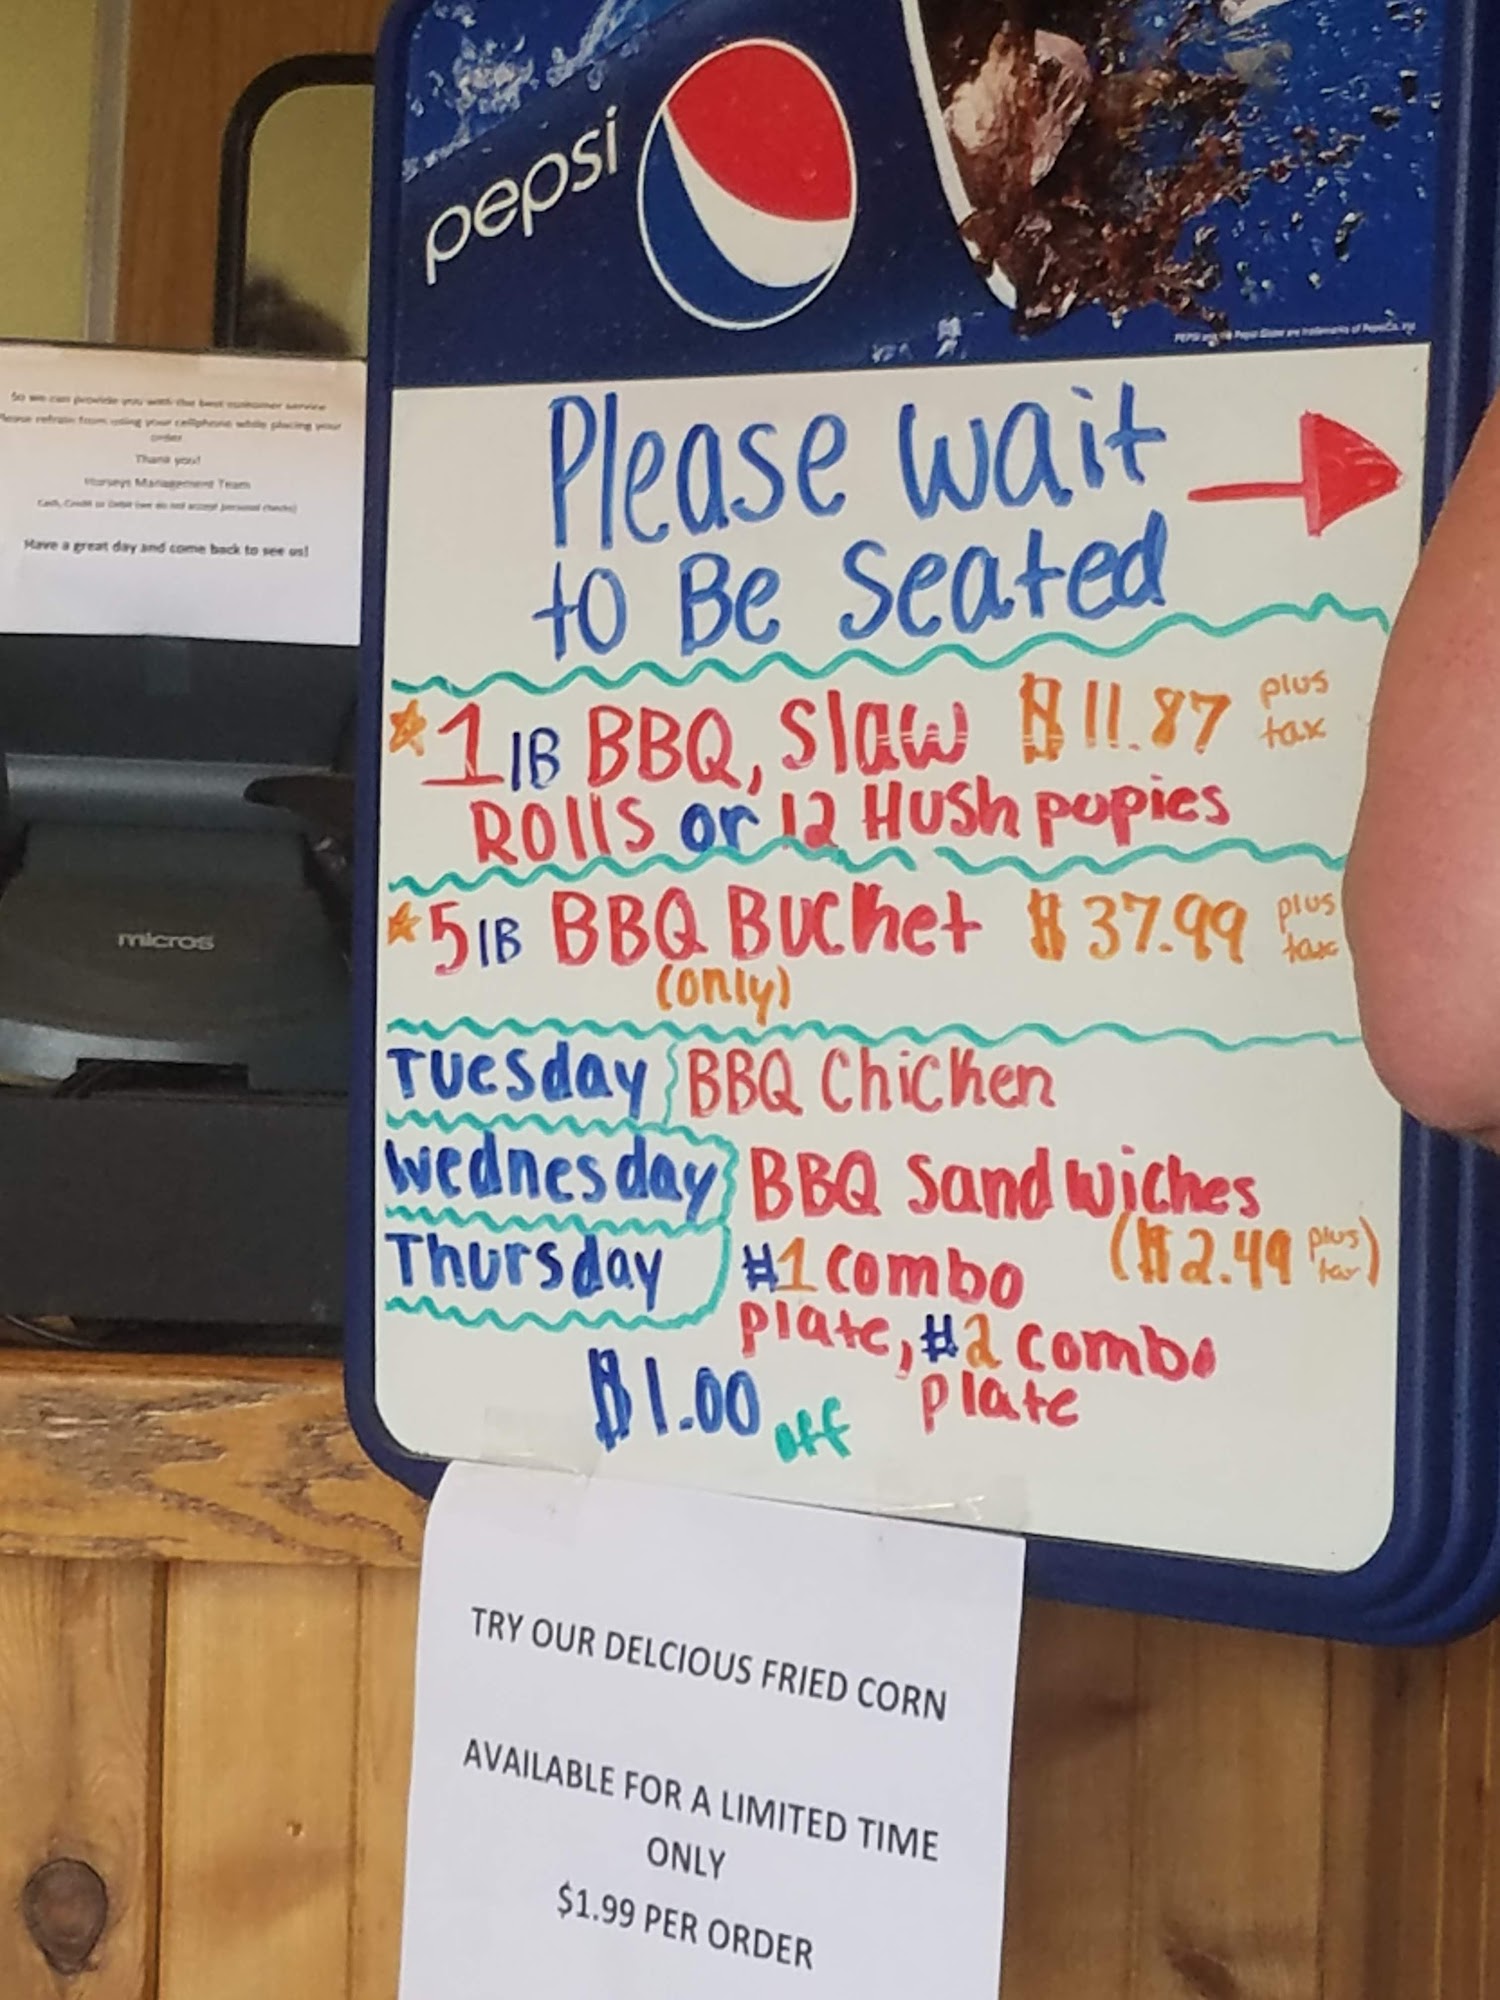 pepsi
PEPSI and the Pepsi Globe are trademarks of PepsiCo, Inc.
Please wait
to Be Seated
1 lB BBQ, Slaw $11.87 plus tax
ROllS or 12 Hush pupies
5 lB BBQ Bucket $37.99 plus tax
(only)
Tuesday BBQ Chicken
Wednesday BBQ Sandwiches
($2.49 plus tax)
Thursday #1 combo
plate, #2 combo
plate
$1.00 off
TRY OUR DELCIOUS FRIED CORN
AVAILABLE FOR A LIMITED TIME
ONLY
$1.99 PER ORDER
So we can provide you with the best customer service
Please refrain from using your cellphone while placing your
order
Thank you!
Management Team
Cash, Credit or Debit (we do not accept personal checks)
Have a great day and come back to see us!
micros